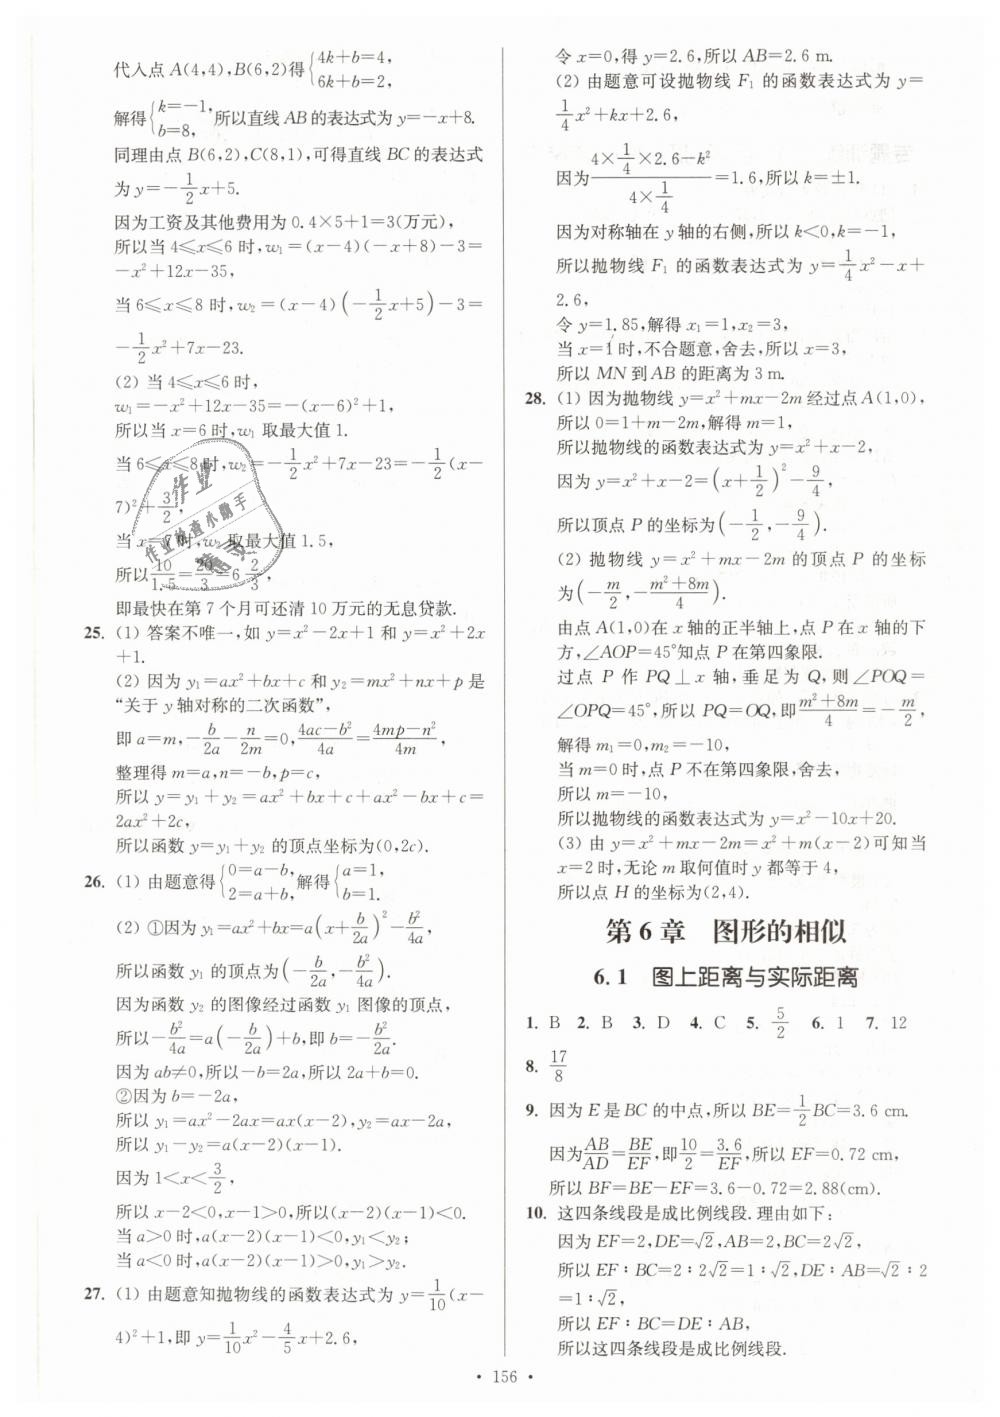 代入点 A(4,4),B(6,2)得{4k+b=4, 6k+b=2,
解得{k=-1, b=8, 所以直线 AB 的表达式为 y=-x+8.
同理由点 B(6,2),C(8,1),可得直线 BC 的表达式
为 y=-1/2x+5.
因为工资及其他费用为 0.4×5+1=3(万元),
所以当 4≤x≤6 时,w₁=(x-4)(-x+8)-3=
-x²+12x-35,
当 6≤x≤8 时,w₂=(x-4)(-1/2x+5)-3=
-1/2x²+7x-23.
(2) 当 4≤x≤6 时,
w₁=-x²+12x-35=-(x-6)²+1,
所以当 x=6 时,w₁ 取最大值 1.
当 6≤x≤8 时,w₂=-1/2x²+7x-23=-1/2(x-
7)²+3/2,
当 x=7 时,w₂ 取最大值 1.5,
所以10/1.5=20/3=6 2/3,
即最快在第 7 个月可还清 10 万元的无息贷款.
25. (1) 答案不唯一,如 y=x²-2x+1 和 y=x²+2x
+1.
(2) 因为 y₁=ax²+bx+c 和 y₂=mx²+nx+p 是
“关于 y 轴对称的二次函数”,
即 a=m,-b/2a-n/2m=0,(4ac-b²)/4a=(4mp-n²)/4m,
整理得 m=a,n=-b,p=c,
所以 y=y₁+y₂=ax²+bx+c+ax²-bx+c=
2ax²+2c,
所以函数 y=y₁+y₂ 的顶点坐标为(0,2c).
26. (1) 由题意得{0=a-b, 2=a+b, 解得{a=1, b=1.
(2) ①因为 y₁=ax²+bx=a(x+b/2a)²-b²/4a,
所以函数 y₁ 的顶点为(-b/2a,-b²/4a).
因为函数 y₂ 的图像经过函数 y₁ 图像的顶点,
所以-b²/4a=a(-b/2a)+b,即 b=-b²/2a.
因为 ab≠0,所以-b=2a,所以 2a+b=0.
②因为 b=-2a,
所以 y₁=ax²-2ax=ax(x-2),y₂=ax-2a,
所以 y₁-y₂=a(x-2)(x-1).
因为 1<x<3/2,
所以 x-2<0,x-1>0,所以(x-2)(x-1)<0.
当 a>0 时,a(x-2)(x-1)<0,y₁<y₂;
当 a<0 时,a(x-2)(x-1)>0,y₁>y₂.
27. (1) 由题意知抛物线的函数表达式为 y=1/10(x-
4)²+1,即 y=1/10x²-4/5x+2.6,
令 x=0,得 y=2.6,所以 AB=2.6 m.
(2) 由题意可设抛物线 F₁ 的函数表达式为 y=
1/4x²+kx+2.6,
因为(4×1/4×2.6-k²)/(4×1/4)=1.6,所以 k=±1.
因为对称轴在 y 轴的右侧,所以 k<0,k=-1,
所以抛物线 F₁ 的函数表达式为 y=1/4x²-x+
2.6,
令 y=1.85,解得 x₁=1,x₂=3,
当 x=1 时,不合题意,舍去,所以 x=3,
所以 MN 到 AB 的距离为 3 m.
28. (1) 因为抛物线 y=x²+mx-2m 经过点 A(1,0),
所以 0=1+m-2m,解得 m=1,
所以抛物线的函数表达式为 y=x²+x-2,
因为 y=x²+x-2=(x+1/2)²-9/4,
所以顶点 P 的坐标为(-1/2,-9/4).
(2) 抛物线 y=x²+mx-2m 的顶点 P 的坐标
为(-m/2,-(m²+8m)/4).
由点 A(1,0)在 x 轴的正半轴上,点 P 在 x 轴的下
方,∠AOP=45°知点 P 在第四象限.
过点 P 作 PQ⊥x 轴,垂足为 Q,则∠POQ=
∠OPQ=45°,所以 PQ=OQ,即(m²+8m)/4=-m/2,
解得 m₁=0,m₂=-10,
当 m=0 时,点 P 不在第四象限,舍去,
所以 m=-10,
所以抛物线的函数表达式为 y=x²-10x+20.
(3) 由 y=x²+mx-2m=x²+m(x-2)可知当
x=2 时,无论 m 取何值时 y 都等于 4,
所以点 H 的坐标为(2,4).
第 6 章 图形的相似
6.1 图上距离与实际距离
1. B 2. B 3. D 4. C 5. 5/2 6. 1 7. 12
8. 17/8
9. 因为 E 是 BC 的中点,所以 BE=1/2BC=3.6 cm.
因为AB/AD=BE/EF,即10/2=3.6/EF,所以 EF=0.72 cm,
所以 BF=BE-EF=3.6-0.72=2.88(cm).
10. 这四条线段是成比例线段.理由如下:
因为 EF=2,DE=√2,AB=2,BC=2√2,
所以 EF∶BC=2∶2√2=1∶√2,DE∶AB=√2∶2
=1∶√2,
所以 EF∶BC=DE∶AB,
所以这四条线段是成比例线段.
• 156 •